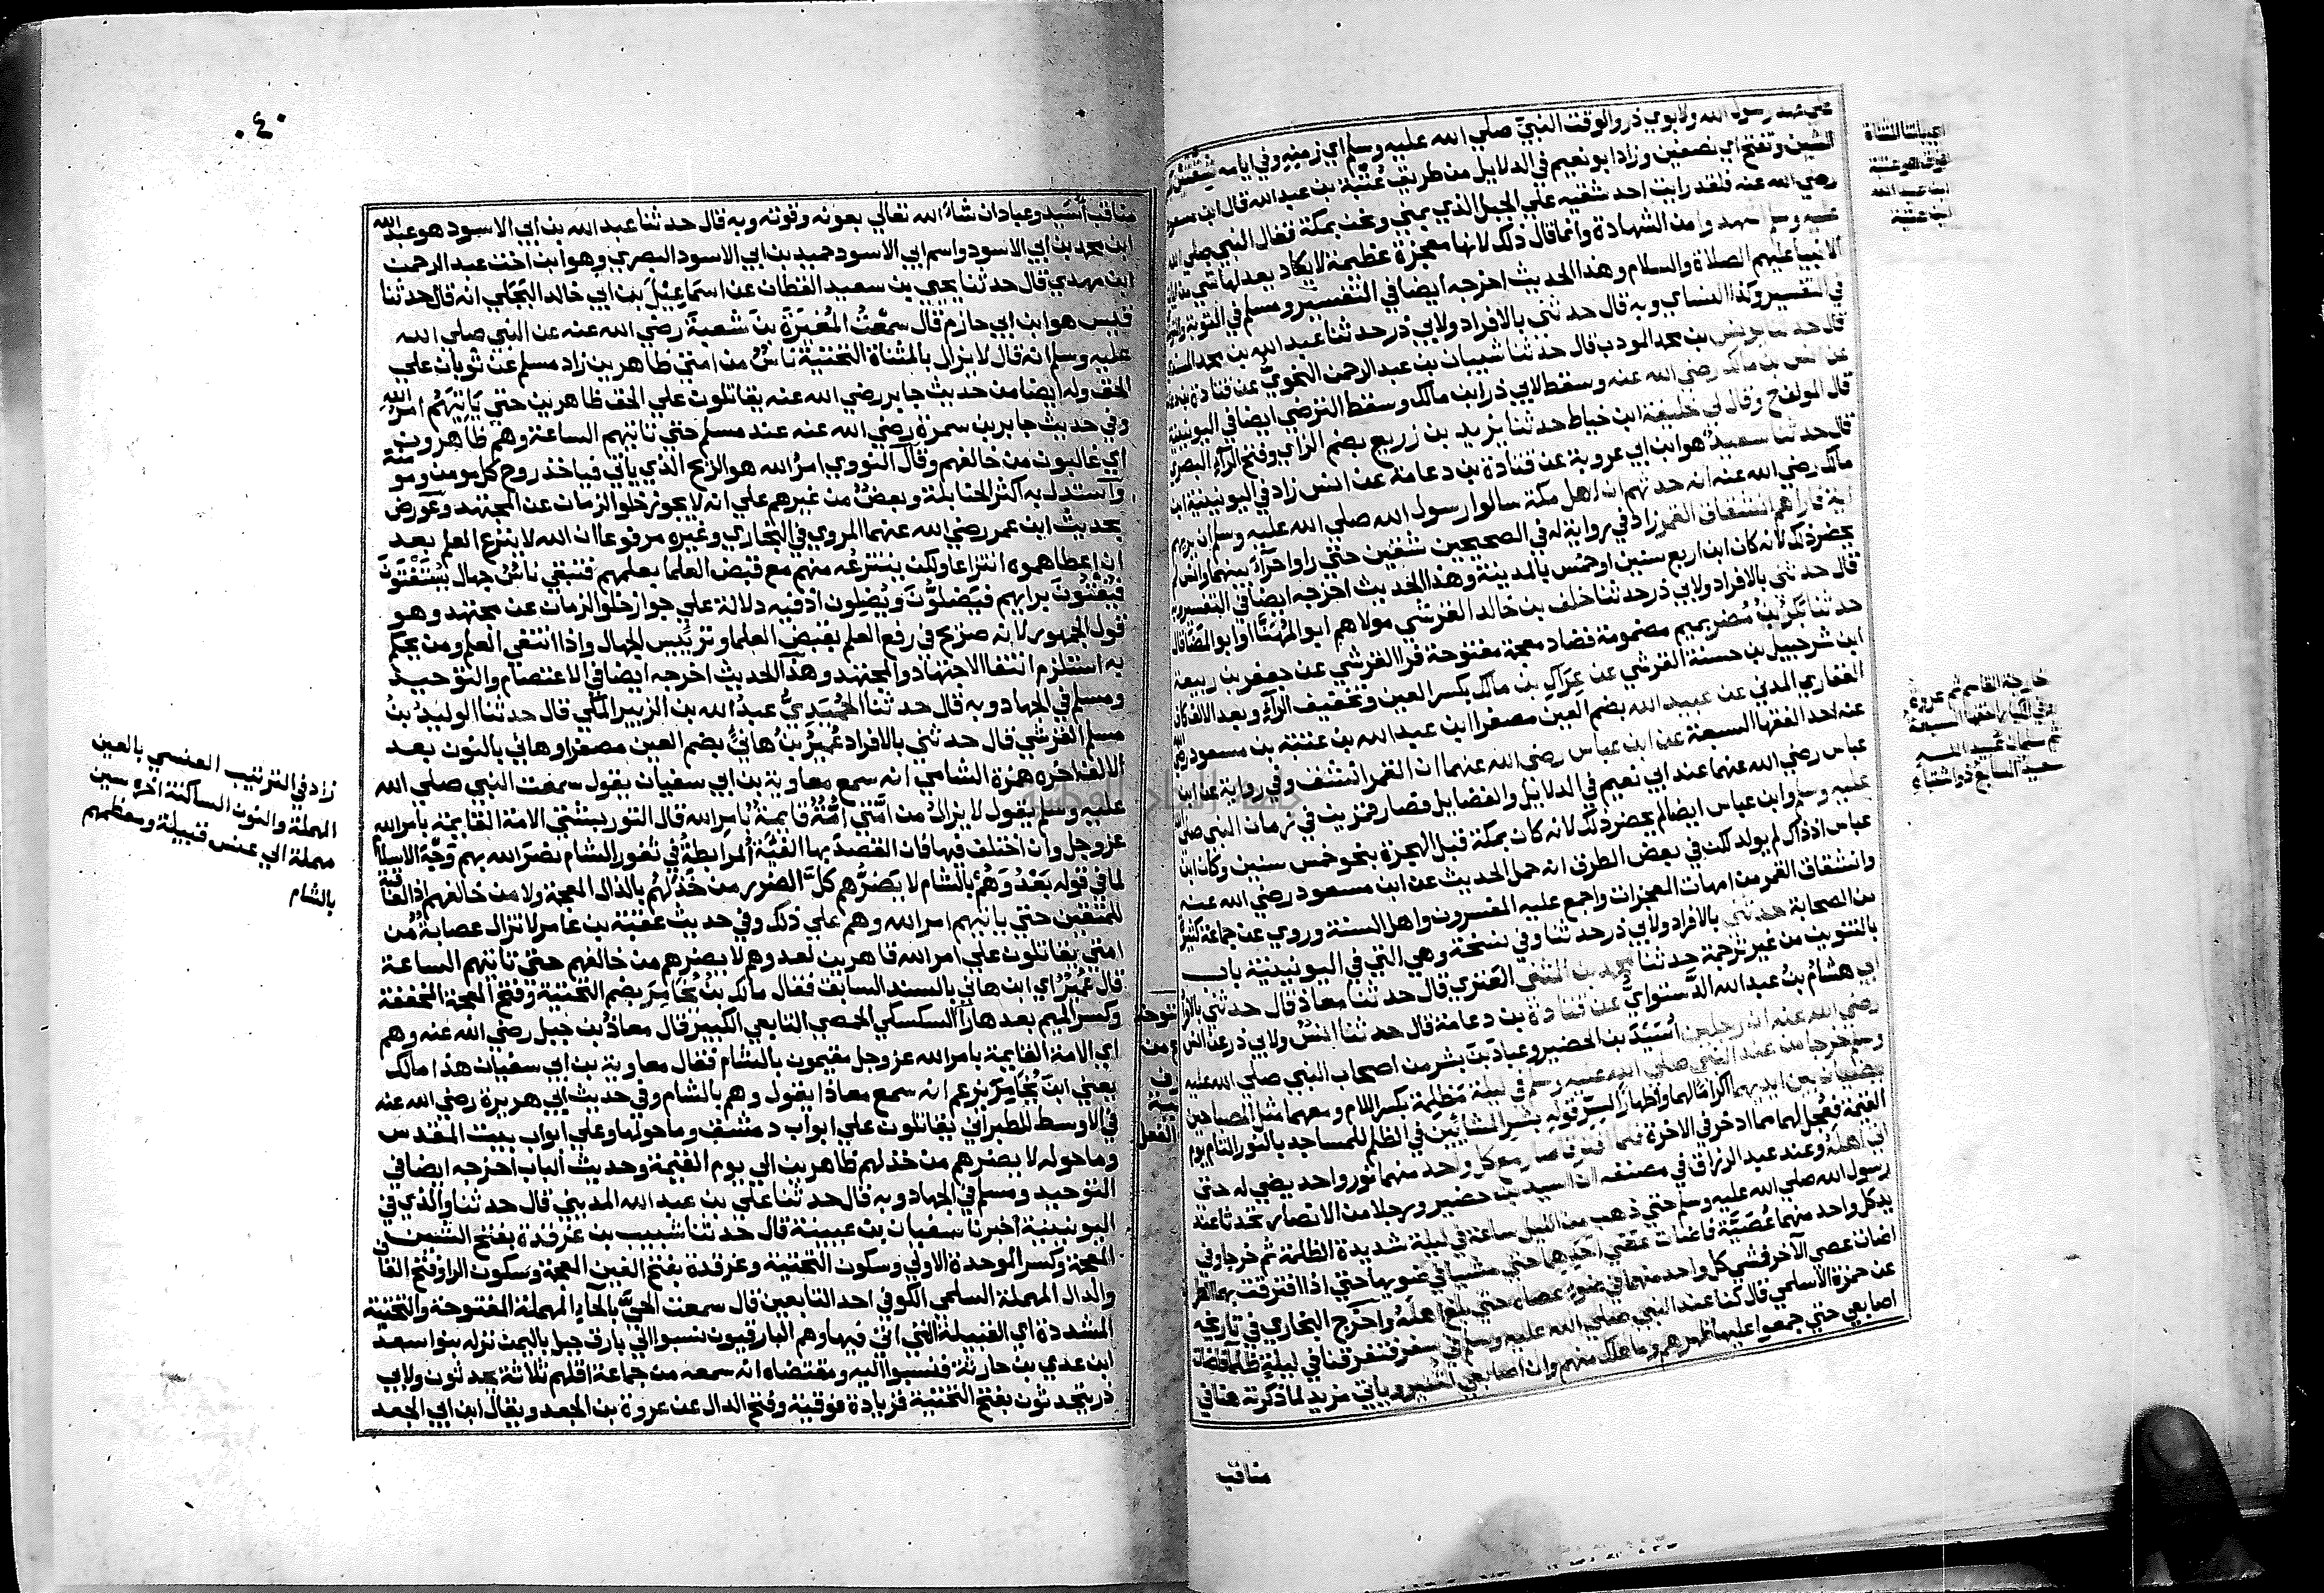 علي عهد رسول الله ولابوي ذر والوقت النبي صلي الله عليه وسلم اي زمنه وفي ايامه شقتين
الشين وتفتح اي نصفين وزاد ابو نعيم في الدلايل من طريق عتبة بن عبد الله قال ابن مسعود
رضي الله عنه فلقد رايت احد شقيه علي الجبل الذي بمني ونحن بمكة فقال النبي صلي الله
عليه وسلم اشهدوا من الشهادة وانما قال ذلك لانها معجزة عظيمة لا يكاد يعدلها شي من ايات
الانبيا عليهم الصلاة والسلام وهذا الحديث اخرجه ايضا في التفسير ومسلم في التوبة
في التفسير وكذا النساي وبه قال حدثني بالافراد ولابي ذر حدثنا عبد الله بن محمد المسندي
قال حدثنا يونس بن محمد المودب قال حدثنا شيبان بن عبد الرحمن النحوي عن قتادة
عن انس بن مالك رضي الله عنه وسقط لابي ذر ابن مالك وسقط الترضي ايضا في اليونينية
قال المولف ح وقال لي خليفة ابن خياط حدثنا يزيد بن زريع بضم الزاي وفتح الراء البصري
قال حدثنا سعيد هو ابن ابي عروبة عن قتادة بن دعامة عن انس زاد في اليونينية ابن
مالك رضي الله عنه انه حدثهم ان اهل مكة سالوا رسول الله صلي الله عليه وسلم ان يريهم
اية فاراهم انشقاق القمر زاد في رواية له في الصحيحين شقتين حتي راوا حراء بينهما وانس لم
يحضر ذلك لانه كان ابن اربع سنين او خمس بالمدينة وهذا الحديث اخرجه ايضا في التفسير
قال حدثني بالافراد ولابي ذر حدثنا خلف بن خالد القرشي مولاهم ابو المهنا او ابو المضا قال
حدثنا بكر بن مضر بميم مضمومة فضاد معجمة مفتوحة فرا القرشي عن جعفر بن ربيعة
ابن شرحبيل بن حسنة القرشي عن عراك بن مالك بكسر العين وتخفيف الراء وبعد الالف كاف
الغفاري المدني عن عبيد الله بضم العين مصغرا ابن عبد الله بن عتبة بن مسعود رضي الله
عنه احد الفقها السبعة عن ابن عباس رضي الله عنهما ان القمر انشق وفي رواية عن ابن
عباس رضي الله عنهما عند ابي نعيم في الدلائل والفضايل فصار قمرين في زمان النبي صلي الله
عليه وسلم وابن عباس ايضا لم يحضر ذلك لانه كان بمكة قبل الهجرة بنحو خمس سنين وكان ابن
عباس اذ ذاك لم يولد لكن في بعض الطرق انه حمل الحديث عن ابن مسعود رضي الله عنه
وانشقاق القمر من امهات المعجزات واجمع عليه المفسرون واهل السنة وروي عن جماعة كثيرة
من الصحابة حدثني بالافراد ولابي ذر حدثنا وفي نسخة وهي التي في اليونينية باب
بالتنوين من غير ترجمة حدثنا محمد بن المثني العنزي قال حدثنا معاذ قال حدثني بالافراد
ابي هشام بن عبد الله الدستواي عن قتادة بن دعامة قال حدثنا انس ولابي ذر عن انس
رضي الله عنه ان رجلين اسيد بن الحضير وعباد بن بشر من اصحاب النبي صلي الله عليه
وسلم خرجا من عند النبي صلي الله عليه وسلم في ليلة مظلمة بكسر اللام ومعهما مثل المصباحين
يضيئان بين ايديهما اكراما لهما واظهارا لسر قوله بشر المشائين في الظلم للمساجد بالنور التام يوم
القيمة فعجل لهما مما ادخر في الاخرة فلما افترقا صار مع كل واحد منهما نور واحد يضي له حتي
اتي اهله وعند عبد الرزاق في مصنفه ان اسيد بن حضير ورجلا من الانصار تحدثا عند
رسول الله صلي الله عليه وسلم حتي ذهب من الليل ساعة في ليلة شديدة الظلمة ثم خرجا وفي
يد كل واحد منهما عصية فاضات عصي احدهما حتي مشيا في ضويها حتي اذا افترقت بهما الطريق
اضات عصي الاخر فمشي كل واحد منهما في ضوء عصاه حتي بلغ اهله واخرج البخاري في تاريخه
عن حمزة الاسلمي قال كنا عند النبي صلي الله عليه وسلم في سفر فتفرقنا في ليلة ظلما فاضات
اصابعي حتي جمعوا عليها ظهرهم وما هلك منهم وان اصابعي لتنير وياتي مزيد لما ذكرته هنا في
مناقب
مناقب اسيد وعباد ان شاء الله تعالي بعونه وقوته وبه قال حدثنا عبد الله بن ابي الاسود هو عبد الله
ابن محمد بن ابي الاسود واسم ابي الاسود حميد بن ابي الاسود البصري وهو ابن اخت عبد الرحمن
ابن مهدي قال حدثنا يحيي بن سعيد القطان عن اسماعيل بن ابي خالد البجلي انه قال حدثنا
قيس هو ابن ابي حازم قال سمعت المغيرة بن شعبة رضي الله عنه عن النبي صلي الله
عليه وسلم انه قال لا يزال بالمثناة التحتية ناس من امتي ظاهرين زاد مسلم عن ثوبان علي
الحق وله ايضا من حديث جابر رضي الله عنه يقاتلون علي الحق ظاهرين حتي ياتيهم امر الله
وفي حديث جابر بن سمرة رضي الله عنه عند مسلم حتي تاتيهم الساعة وهم ظاهرون
اي غالبون من خالفهم وقال النووي امر الله هو الريح الذي ياتي فياخذ روح كل مومن ومومنة
واستدل به اكثر الحنابلة وبعض من غيرهم علي انه لا يجوز خلو الزمان عن المجتهد وعورض
بحديث ابن عمر رضي الله عنهما المروي في البخاري وغيره مرفوعا ان الله لا ينزع العلم بعد
ان اعطاهموه انتزاعا ولكن ينتزعه منهم مع قبض العلما بعلمهم فتبقي ناس جهال يستفتون
فيفتون برايهم فيضلون ويضلون اذ فيه دلالة علي جواز خلو الزمان عن مجتهد وهو
قول الجمهور لانه صريح في رفع العلم بقبض العلما وترئيس الجهال واذا انتفي العلم ومن يحكم
به استلزم انتفا الاجتهاد والمجتهد وهذا الحديث اخرجه ايضا في الاعتصام والتوحيد
ومسلم في الجهاد وبه قال حدثنا الحميدي عبد الله بن الزبير المكي قال حدثنا الوليد بن
مسلم القرشي قال حدثني بالافراد عمير بن هاني بضم العين مصغرا وهاني بالنون بعد
الالف اخره همزة الشامي انه سمع معاوية بن ابي سفيان يقول سمعت النبي صلي الله
عليه وسلم يقول لا يزال من امتي امة قايمة بامر الله قال التوربشتي الامة القايمة بامر الله
عز وجل وان اختلف فيها فان القصد بها الفئة المرابطة في ثغور الشام نضر الله بهم وجه الاسلام
لما في قوله بعد وهم بالشام لا يضرهم كل الضرر من خذلهم بالذال المعجمة ولا من خالفهم اذ العاقبة
للمتقين حتي ياتيهم امر الله وهم علي ذلك وفي حديث عقبة بن عامر لا تزال عصابة من
امتي يقاتلون علي امر الله قاهرين لعدوهم لا يضرهم من خالفهم حتي تاتيهم الساعة
قال عمير اي ابن هاني بالسند السابق فقال مالك بن يخامر بضم التحتية وفتح المعجمة المخففة
وكسر الميم بعدها را السكسكي الحمصي التابعي الكبير قال معاذ بن جبل رضي الله عنه وهم
اي الامة القايمة بامر الله عز وجل مقيمون بالشام فقال معاوية بن ابي سفيان هذا مالك
يعني ابن يخامر يزعم انه سمع معاذا يقول وهم بالشام وفي حديث ابي هريرة رضي الله عنه
في الاوسط للطبراني يقاتلون علي ابواب دمشق وما حولها وعلي ابواب بيت المقدس
وما حوله لا يضرهم من خذلهم ظاهرين الي يوم القيمة وحديث الباب اخرجه ايضا في
التوحيد ومسلم في الجهاد وبه قال حدثنا علي بن عبد الله المديني قال حدثنا والذي في
اليونينية اخبرنا سفيان بن عيينة قال حدثنا شبيب بن غرقدة بفتح الشين
المعجمة وكسر الموحدة الاولي وسكون التحتية وغرقدة بفتح الغين المعجمة وسكون الرا وفتح القاف
والدال المهملة السلمي الكوفي احد التابعين قال سمعت الحي بالحاء المهملة المفتوحة والتحتية
المشددة اي القبيلة التي انا فيها وهم البارقيون نسبوا الي بارق جبل باليمن نزله بنوا سعد
ابن عدي بن حارثة فنسبوا اليه ومقتضاه انه سمعه من جماعة اقلهم ثلاثة يحدثون ولابي
ذر يتحدثون بفتح التحتية فزيادة فوقية وفتح الدال عن عروة بن الجعد ويقال ابن ابي الجعد
زاد في الترتيب العنسي بالعين
المهملة والنون الساكنة اخره سين
مهملة الي عنس قبيلة ومعظمهم
بالشام
٤٠